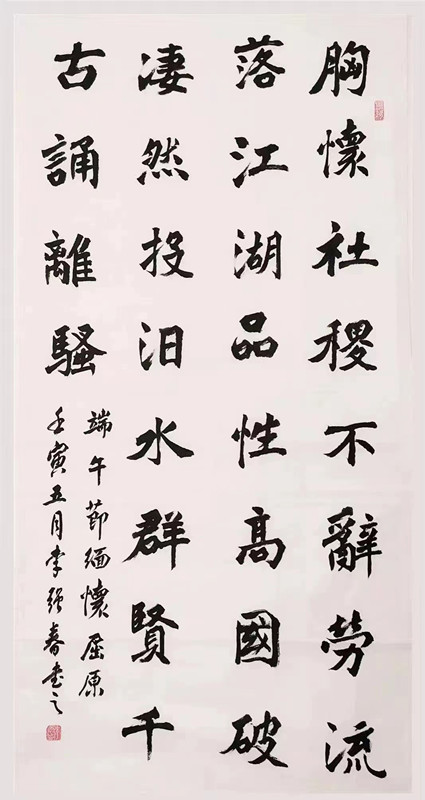 胸懷社稷不辭勞流
落江湖品性高國破
凄然投汨水群賢千
古誦離騷
端午節緬懷屈原
壬寅五月李强春書之